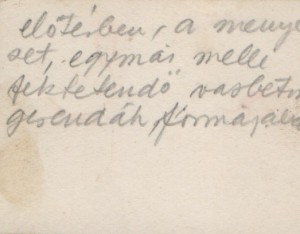 előtérben, a menye
set, egymás mellé
fektetendő vasbeton
gerendák formájá